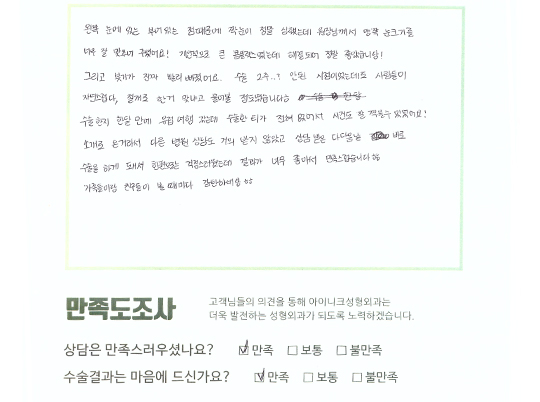 왼쪽 눈에 있는 부어 있는 흰테에 짝눈이 정말 심했는데 원장님께서 양쪽 눈크기를
너무 잘 맞춰서 주셨어요! 개인적으로 큰 콤플렉스였는데 해결되어 정말 좋았습니다!
그리고 붓기가 진짜 빨리 빠졌어요. 수술 2주..? 안된 시점이었는데도 사람들이
자연스럽다, 잘 됐다
수술한지 한달 만에 유럽 여행 갔는데 수술한 티가 전혀 없어서 사진도 잘 찍을수 있었어요!
소개로 온거라서 다른 병원 상담도 거의 받지 않았고 상담 받은 다음날 바로
수술을 하게 돼서 한편으로는 걱정스러웠는데 결과가 너무 좋아서 만족스럽습니다 ㅎㅎ
가족들이랑 친구들이 볼 때마다 감탄하네요 ㅎㅎ
만족도조사
고객님들의 의견을 통해 아이니크성형외과는
더욱 발전하는 성형외과가 되도록 노력하겠습니다.
상담은 만족스러우셨나요? ☑ 만족 □ 보통 □ 불만족
수술결과는 마음에 드신가요? ☑ 만족 □ 보통 □ 불만족